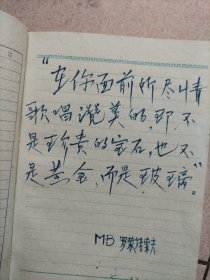 “在你面前所尽情
歌唱赞美的,即不
是珍贵的宝石,也不
是黄金,而是玻璃。”
MB 罗蒙诺索夫